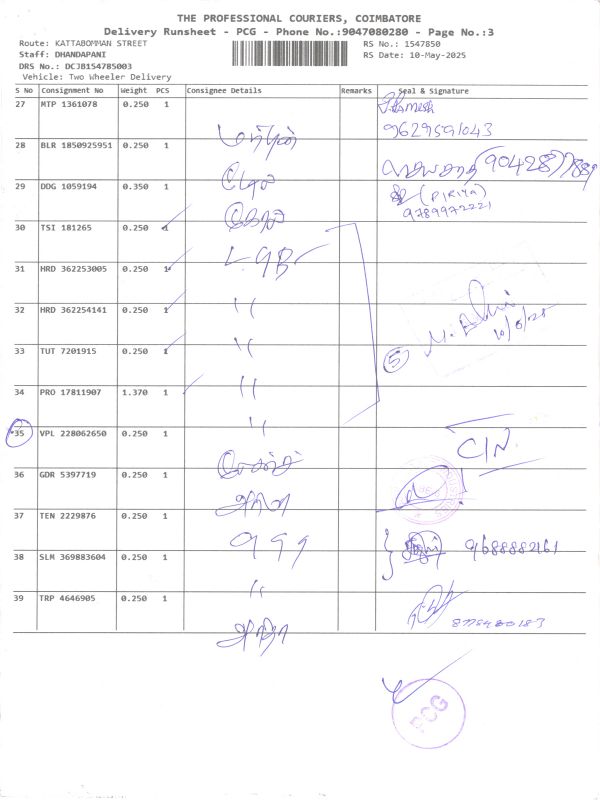 THE PROFESSIONAL COURIERS, COIMBATORE
Delivery Runsheet - PCG - Phone No.:9047080280 - Page No.:3
Route: KATTABOMMAN STREET RS No.: 1547850
Staff: DHANDAPANI RS Date: 10-May-2025
DRS No.: DCJB154785003
Vehicle: Two Wheeler Delivery
S No Consignment No Weight PCS Consignee Details Remarks Seal & Signature
27 MTP 1361078 0.250 1
9629591043
28 BLR 1850925951 0.250 1
29 DDG 1059194 0.350 1 (PIRIYA)
9789972221
30 TSI 181265 0.250 1
L.GB
31 HRD 362253005 0.250 1
"
32 HRD 362254141 0.250 1 10/5/25
"
33 TUT 7201915 0.250 1 5
"
34 PRO 17811907 1.370 1
"
35 VPL 228062650 0.250 1 C/N.
36 GDR 5397719 0.250 1
37 TEN 2229876 0.250 1
999 9688882161
38 SLM 369883604 0.250 1
"
39 TRP 4646905 0.250 1
8778480183
PCG